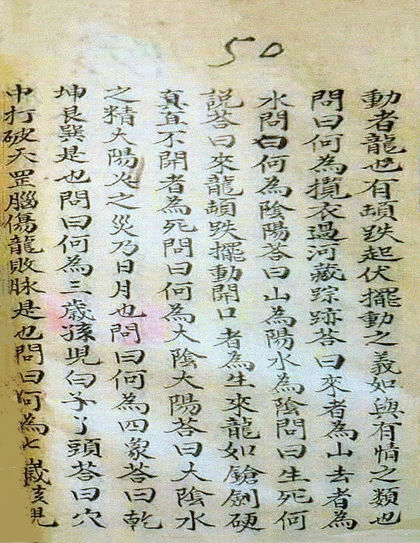 50
動者龍也有頓跌起伏擺動之義如與有情之類也
問曰何為攬衣過河藏踪跡答曰來者為山去者為
水問曰何為陰陽答曰山為陽水為陰問曰生死何
說答曰來龍頓跌擺動開口者為生來龍如鎗劍硬
真直不開者為死問曰何為大陰大陽答曰大陰水
之精大陽火之災乃日月也問曰何為四象答曰乾
坤艮巽是也問曰何為三歲孫兒白了頭答曰穴
中打破天罡腦傷龍敗脉是也問曰何為七歲孩兒